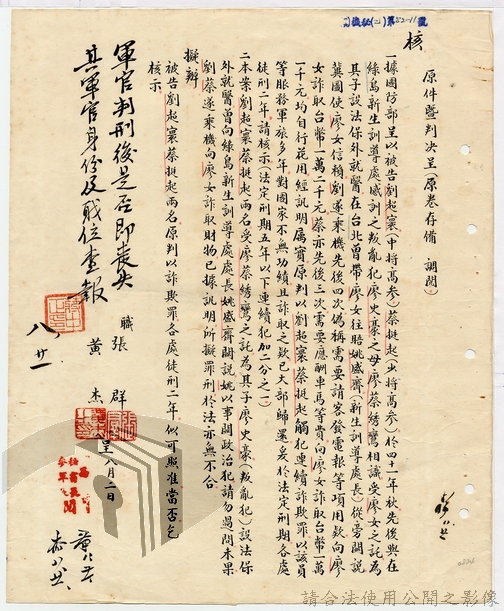 核
原件暨判决呈(原卷存備 調閱)
一據國防部呈以被告劉超寰(中將高參)蔡挺起(少將高參)於四十一年秋先後與在
綠島新生訓導處感訓之叛亂犯廖史豪之母廖蔡綉鸞相識受廖女之託為
其子設法保外就醫在台北曾帶廖女往晤姚盛齊(新生訓導處長)從旁關說
冀圖使廖女信賴劉遂乘機先後四次偽稱需要請客發電報等項用欵向廖
女詐取台幣一萬二千元蔡亦先後三次需要應酬車馬等費向廖女詐取台幣一萬
一千元均自行花用經訊明属實原判以劉超寰蔡挺起觸犯連續詐欺罪以該員
等服務軍旅多年對國家不無功績且詐取之欵已大部歸還爰於法定刑期各處
徒刑二年請核示(法定刑期五年以下連續犯加二分之一)
二本案劉超寰蔡挺起兩名受廖蔡綉鸞之託為其子廖史豪(叛亂犯)設法保
外就醫曾向綠島新生訓導處處長姚盛齊關說姚以事關政治犯請勿過問未果
劉蔡遂乘機向廖女詐取財物已據訊明所擬罪刑於法亦無不合
擬辦
被告劉超寰蔡挺起兩名原判以詐欺罪各處徒刑二年似可照准當否乞
核示
職張 群
黃 杰
呈 八月二日
軍官判刑後是否即喪失
其軍官身份及戰位查報
八、廿一
請合法使用公開之影像